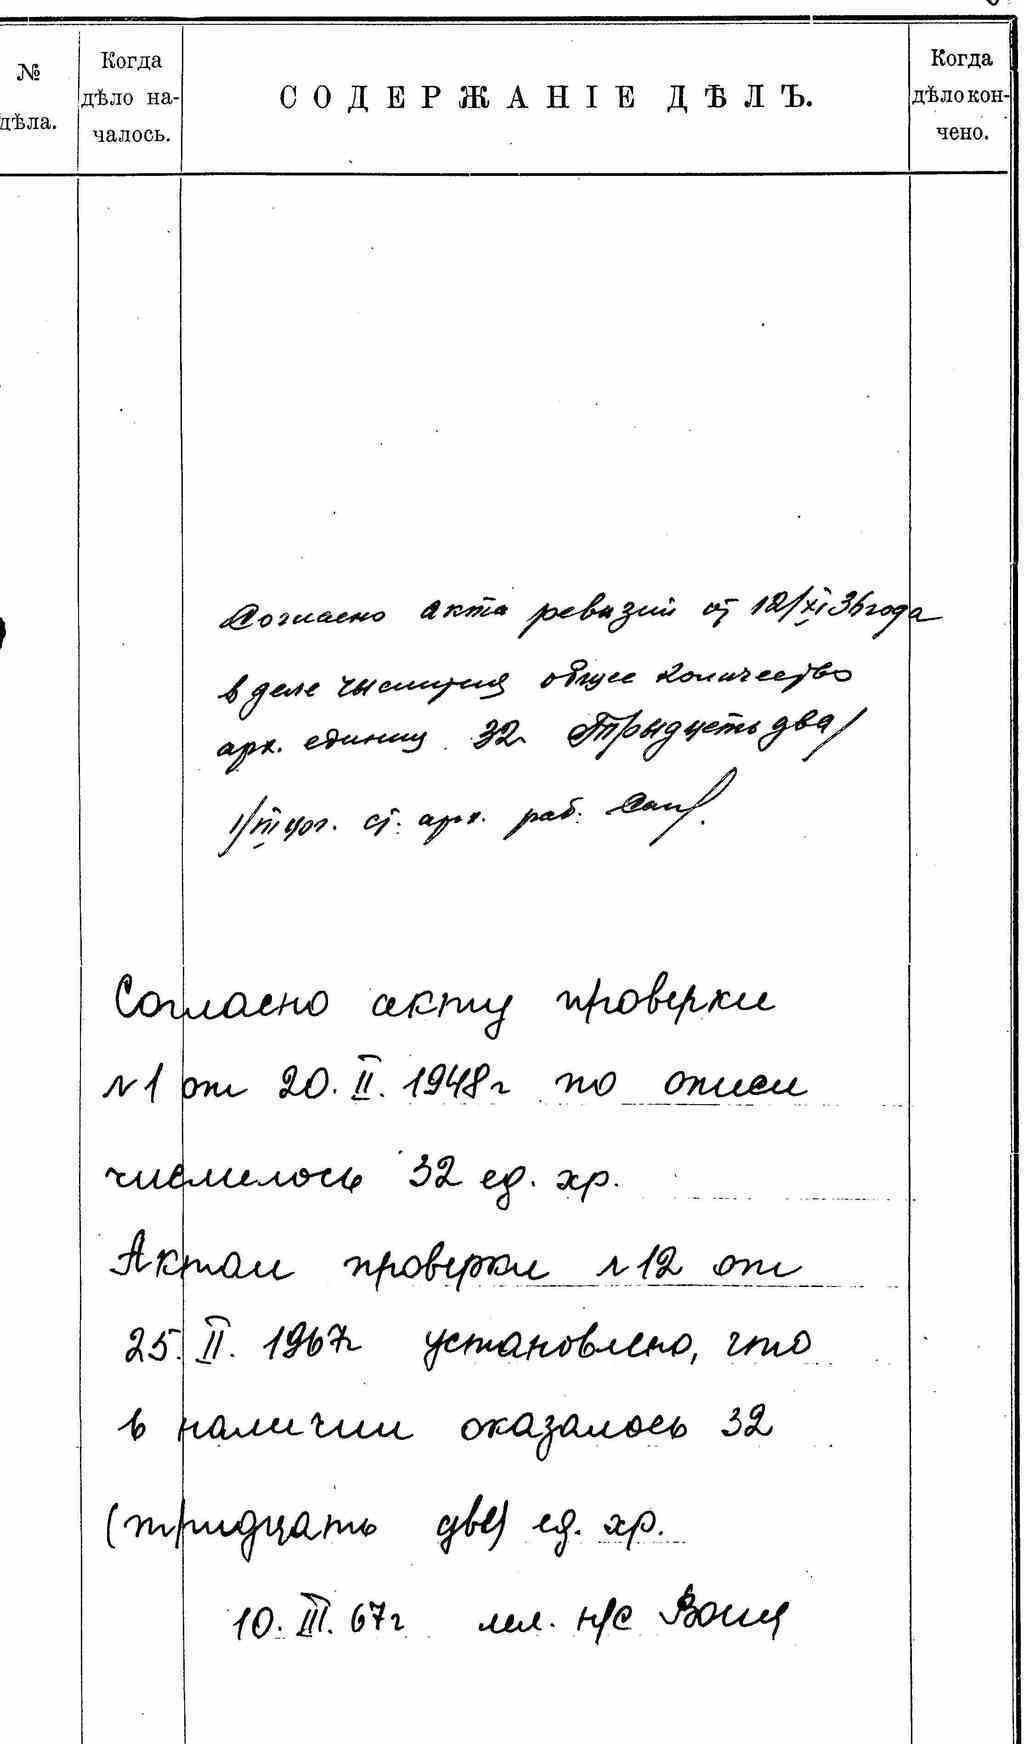 № дѣла.
Когда дѣло на-
чалось.
СОДЕРЖАНІЕ ДѢЛЪ.
Когда дѣло кон-
чено.
Согласно акта ревизии от 12/XI 36 года
в деле числится общее количество
арх. единиц 32 Трыдцеть два/
1/III 40г. ст. арх. раб.
Согласно акту проверки
№1 от 20.II.1948г по описи
числилось 32 ед. хр.
Актом проверки №12 от
25.II.1967г установлено, что
в наличии оказалось 32
(тридцать две) ед. хр.
10.III.67г мл. н/с